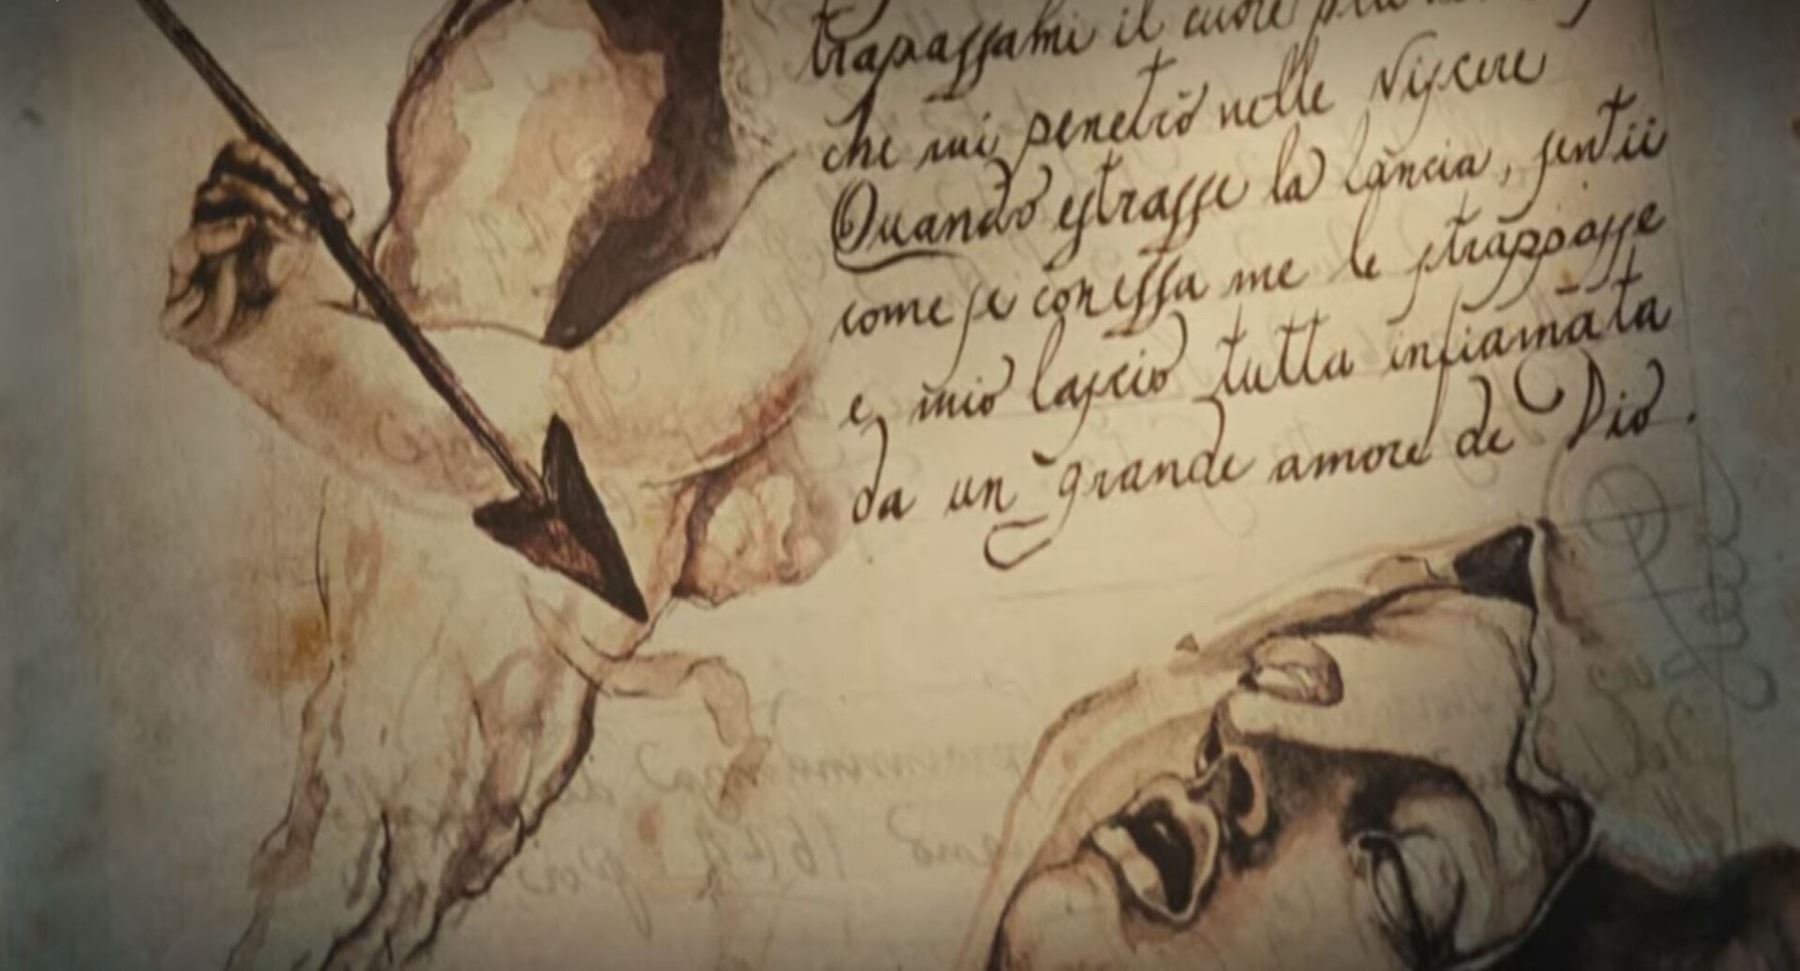 trapassami il cuore più
che mi penetrò nelle viscere
Quando estrasse la lancia, sentii
come se conessa me le strappasse
e mio lascio tutta infiamata
da un grande amore de Dio.
1644